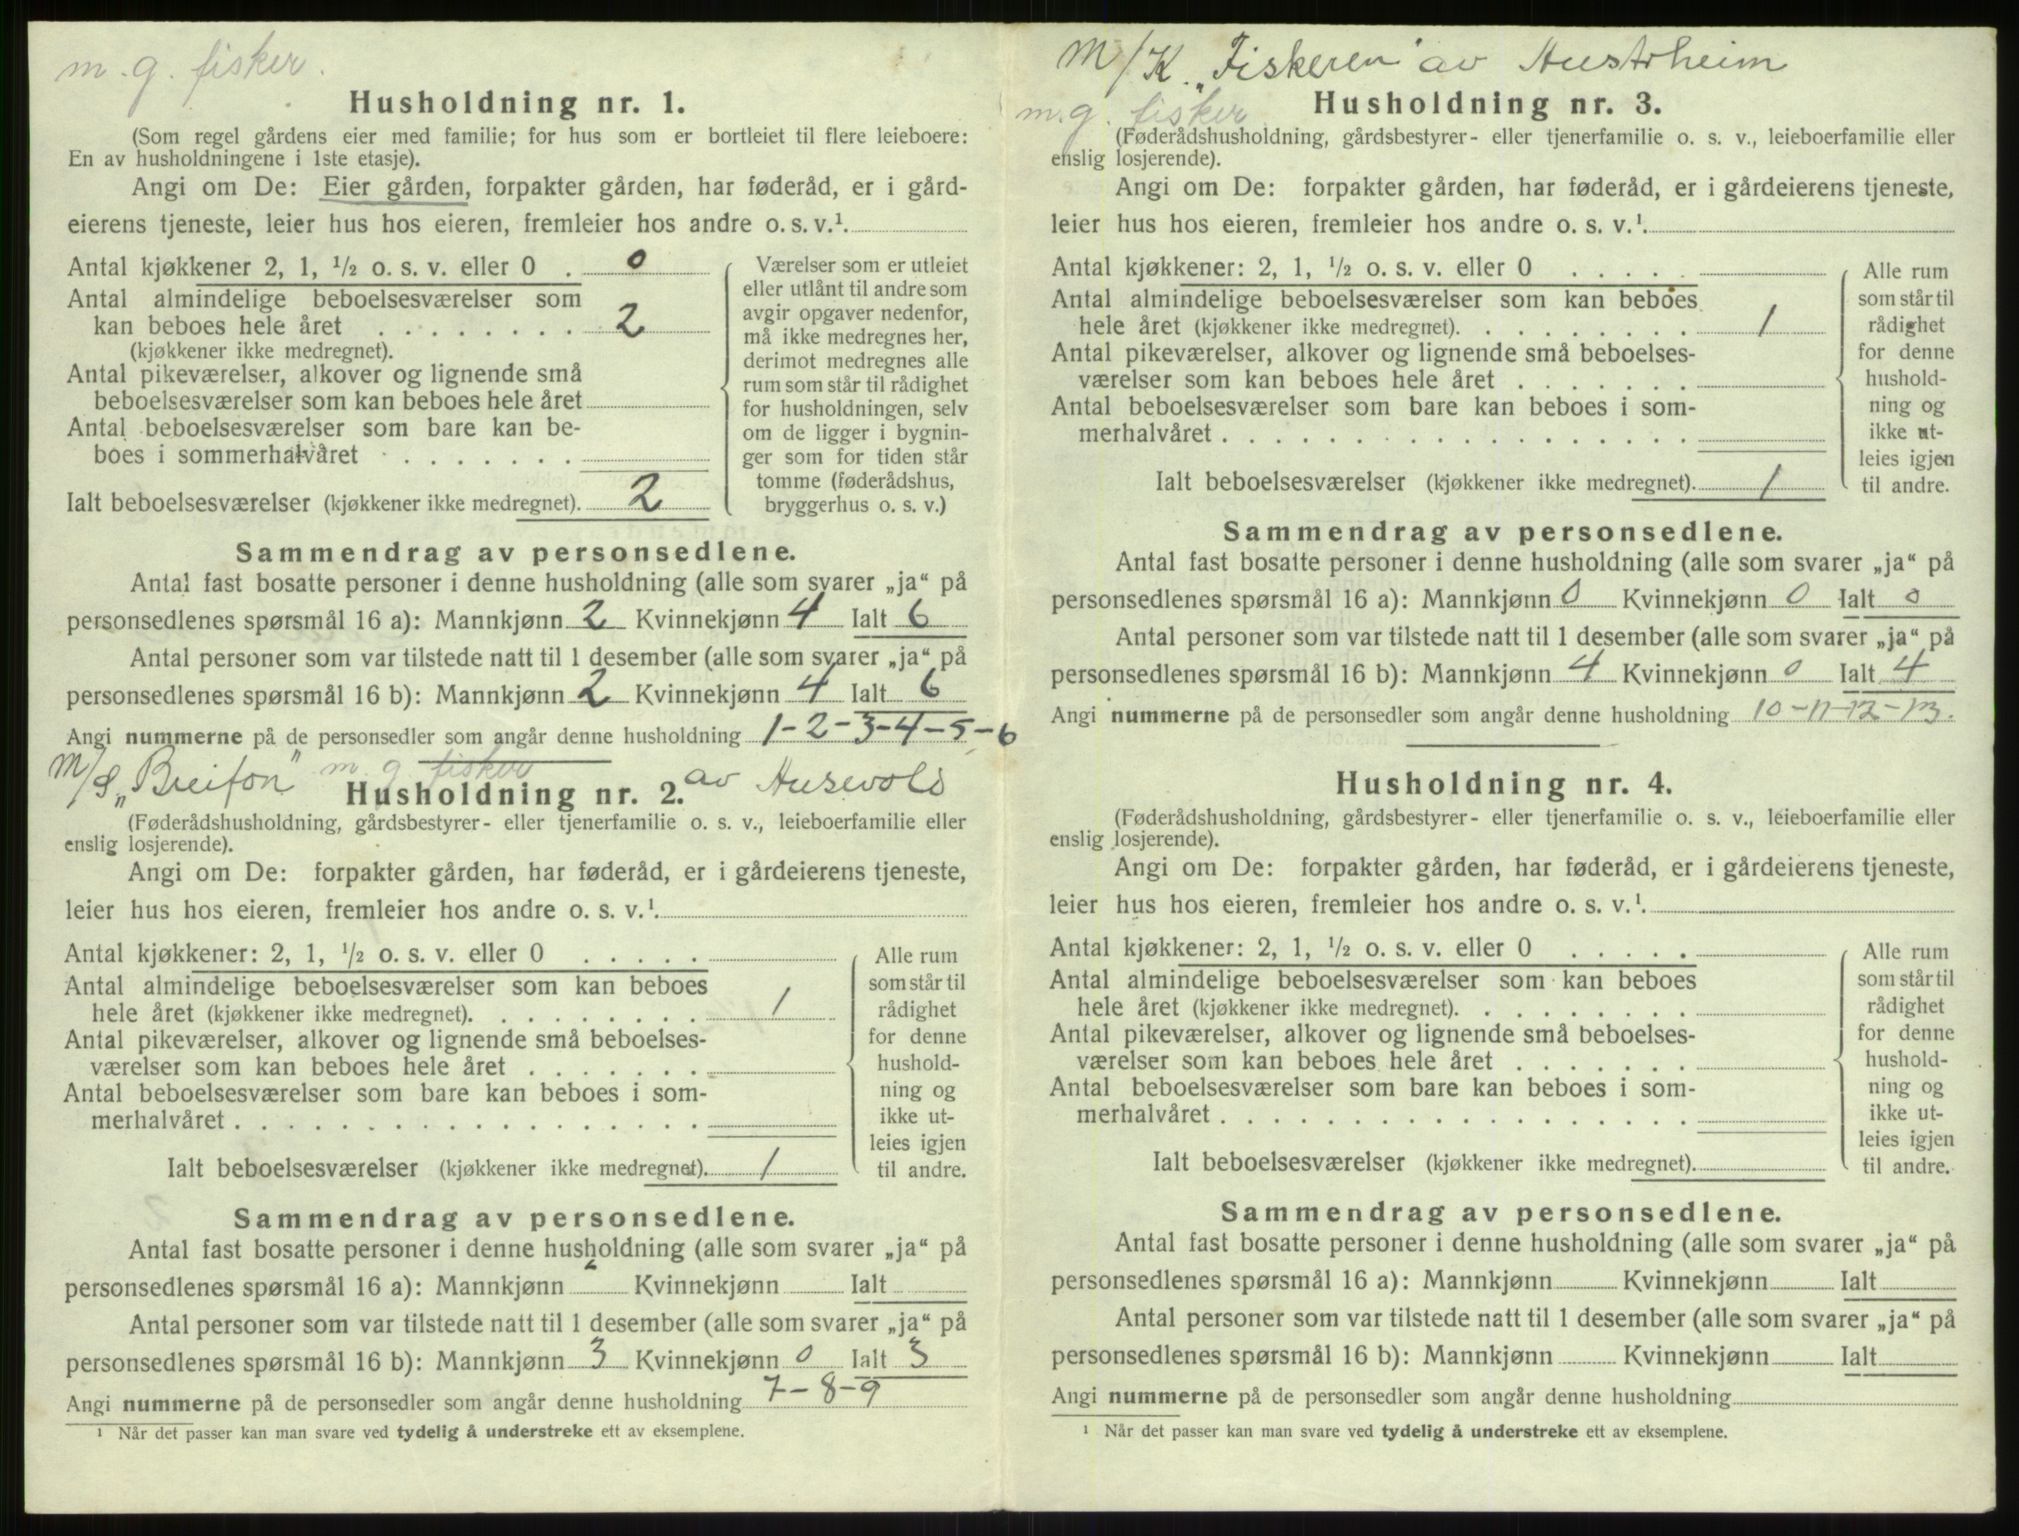 m. g. fisker.
Husholdning nr. 1.
(Som regel gårdens eier med familie; for hus som er bortleiet til flere leieboere:
En av husholdningene i 1ste etasje).
Angi om De: Eier gården, forpakter gården, har føderåd, er i gård-
eierens tjeneste, leier hus hos eieren, fremleier hos andre o. s. v.¹.
Antal kjøkkener 2, 1, ½ o. s. v. eller 0 . 0
Antal almindelige beboelsesværelser som
kan beboes hele året . . . . . . . . 2
(kjøkkener ikke medregnet).
Antal pikeværelser, alkover og lignende små
beboelsesværelser som kan beboes hele året
Antal beboelsesværelser som bare kan be-
boes i sommerhalvåret . . . . . . .
Ialt beboelsesværelser (kjøkkener ikke medregnet). 2
Værelser som er utleiet
eller utlånt til andre som
avgir opgaver nedenfor,
må ikke medregnes her,
derimot medregnes alle
rum som står til rådighet
for husholdningen, selv
om de ligger i bygnin-
ger som for tiden står
tomme (føderådshus,
bryggerhus o. s. v.)
Sammendrag av personsedlene.
Antal fast bosatte personer i denne husholdning (alle som svarer „ja“ på
personsedlenes spørsmål 16 a): Mannkjønn 2 Kvinnekjønn 4 Ialt 6
Antal personer som var tilstede natt til 1 desember (alle som svarer „ja“ på
personsedlenes spørsmål 16 b): Mannkjønn 2 Kvinnekjønn 4 Ialt 6
Angi nummerne på de personsedler som angår denne husholdning 1-2-3-4-5-6
M/S „Breifon” m. g. fisker av Husevold
Husholdning nr. 2.
(Føderådshusholdning, gårdsbestyrer- eller tjenerfamilie o. s. v., leieboerfamilie eller
enslig losjerende).
Angi om De: forpakter gården, har føderåd, er i gårdeierens tjeneste,
leier hus hos eieren, fremleier hos andre o. s. v.¹.
Antal kjøkkener: 2, 1, ½ o. s. v. eller 0 . . . . .
Antal almindelige beboelsesværelser som kan beboes
hele året (kjøkkener ikke medregnet). . . . . . . . . 1
Antal pikeværelser, alkover og lignende små beboelses-
værelser som kan beboes hele året . . . . . . .
Antal beboelsesværelser som bare kan beboes i som-
merhalvåret . . . . . . . . . . . . . . . . . .
Ialt beboelsesværelser (kjøkkener ikke medregnet). 1
Alle rum
som står til
rådighet
for denne
hushold-
ning og
ikke ut-
leies igjen
til andre.
Sammendrag av personsedlene.
Antal fast bosatte personer i denne husholdning (alle som svarer „ja“ på
personsedlenes spørsmål 16 a): Mannkjønn Kvinnekjønn Ialt
Antal personer som var tilstede natt til 1 desember (alle som svarer „ja“ på
personsedlenes spørsmål 16 b): Mannkjønn 3 Kvinnekjønn 0 Ialt 3
Angi nummerne på de personsedler som angår denne husholdning 7-8-9
¹ Når det passer kan man svare ved tydelig å understreke ett av eksemplene.
M/K. „Fiskeren” av Austrheim
m. g. fisker
Husholdning nr. 3.
(Føderådshusholdning, gårdsbestyrer- eller tjenerfamilie o. s. v., leieboerfamilie eller
enslig losjerende).
Angi om De: forpakter gården, har føderåd, er i gårdeierens tjeneste,
leier hus hos eieren, fremleier hos andre o. s. v.¹.
Antal kjøkkener: 2, 1, ½ o. s. v. eller 0 . . . . .
Antal almindelige beboelsesværelser som kan beboes
hele året (kjøkkener ikke medregnet). . . . . . . . . 1
Antal pikeværelser, alkover og lignende små beboelses-
værelser som kan beboes hele året . . . . . . .
Antal beboelsesværelser som bare kan beboes i som-
merhalvåret . . . . . . . . . . . . . . . . . .
Ialt beboelsesværelser (kjøkkener ikke medregnet). 1
Alle rum
som står til
rådighet
for denne
hushold-
ning og
ikke ut-
leies igjen
til andre.
Sammendrag av personsedlene.
Antal fast bosatte personer i denne husholdning (alle som svarer „ja“ på
personsedlenes spørsmål 16 a): Mannkjønn 0 Kvinnekjønn 0 Ialt 0
Antal personer som var tilstede natt til 1 desember (alle som svarer „ja“ på
personsedlenes spørsmål 16 b): Mannkjønn 4 Kvinnekjønn 0 Ialt 4
Angi nummerne på de personsedler som angår denne husholdning 10-11-12-13.
Husholdning nr. 4.
(Føderådshusholdning, gårdsbestyrer- eller tjenerfamilie o. s. v., leieboerfamilie eller
enslig losjerende).
Angi om De: forpakter gården, har føderåd, er i gårdeierens tjeneste,
leier hus hos eieren, fremleier hos andre o. s. v.¹.
Antal kjøkkener: 2, 1, ½ o. s. v. eller 0 . . . . .
Antal almindelige beboelsesværelser som kan beboes
hele året (kjøkkener ikke medregnet). . . . . . . . .
Antal pikeværelser, alkover og lignende små beboelses-
værelser som kan beboes hele året . . . . . . .
Antal beboelsesværelser som bare kan beboes i som-
merhalvåret . . . . . . . . . . . . . . . . . .
Ialt beboelsesværelser (kjøkkener ikke medregnet).
Alle rum
som står til
rådighet
for denne
hushold-
ning og
ikke ut-
leies igjen
til andre.
Sammendrag av personsedlene.
Antal fast bosatte personer i denne husholdning (alle som svarer „ja“ på
personsedlenes spørsmål 16 a): Mannkjønn Kvinnekjønn Ialt
Antal personer som var tilstede natt til 1 desember (alle som svarer „ja“ på
personsedlenes spørsmål 16 b): Mannkjønn Kvinnekjønn Ialt
Angi nummerne på de personsedler som angår denne husholdning
¹ Når det passer kan man svare ved tydelig å understreke ett av eksemplene.